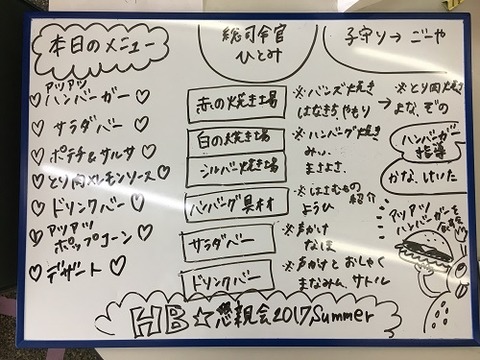 本日のメニュー
♡アツアツハンバーガー♡
♡サラダバー♡
♡ポテチ&サルサ♡
♡とり肉レモンソース♡
♡ドリンクバー♡
♡アツアツポップコーン♡
♡デザート♡
総司令官
ひとみ
子守り→ごーや
赤の焼き場
※バンズ焼き
はなきち、やもり
※とり肉焼き
よな、ぞの
白の焼き場
※ハンバーグ焼き
みぃ、
シルバー焼き場
まさよさ
ハンバーガー
指導
かな、けいた
ハンバーグ具材
※はさむもの紹介
ようひ
サラダバー
※声かけ
なほ
ドリンクバー
※声かけとおしゃく
まなみん、サトル
アツアツ
ハンバーガーを
HB☆懇親会2017Summer